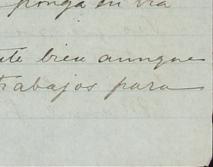 ponga en vía
te bien aunque
trabajos para